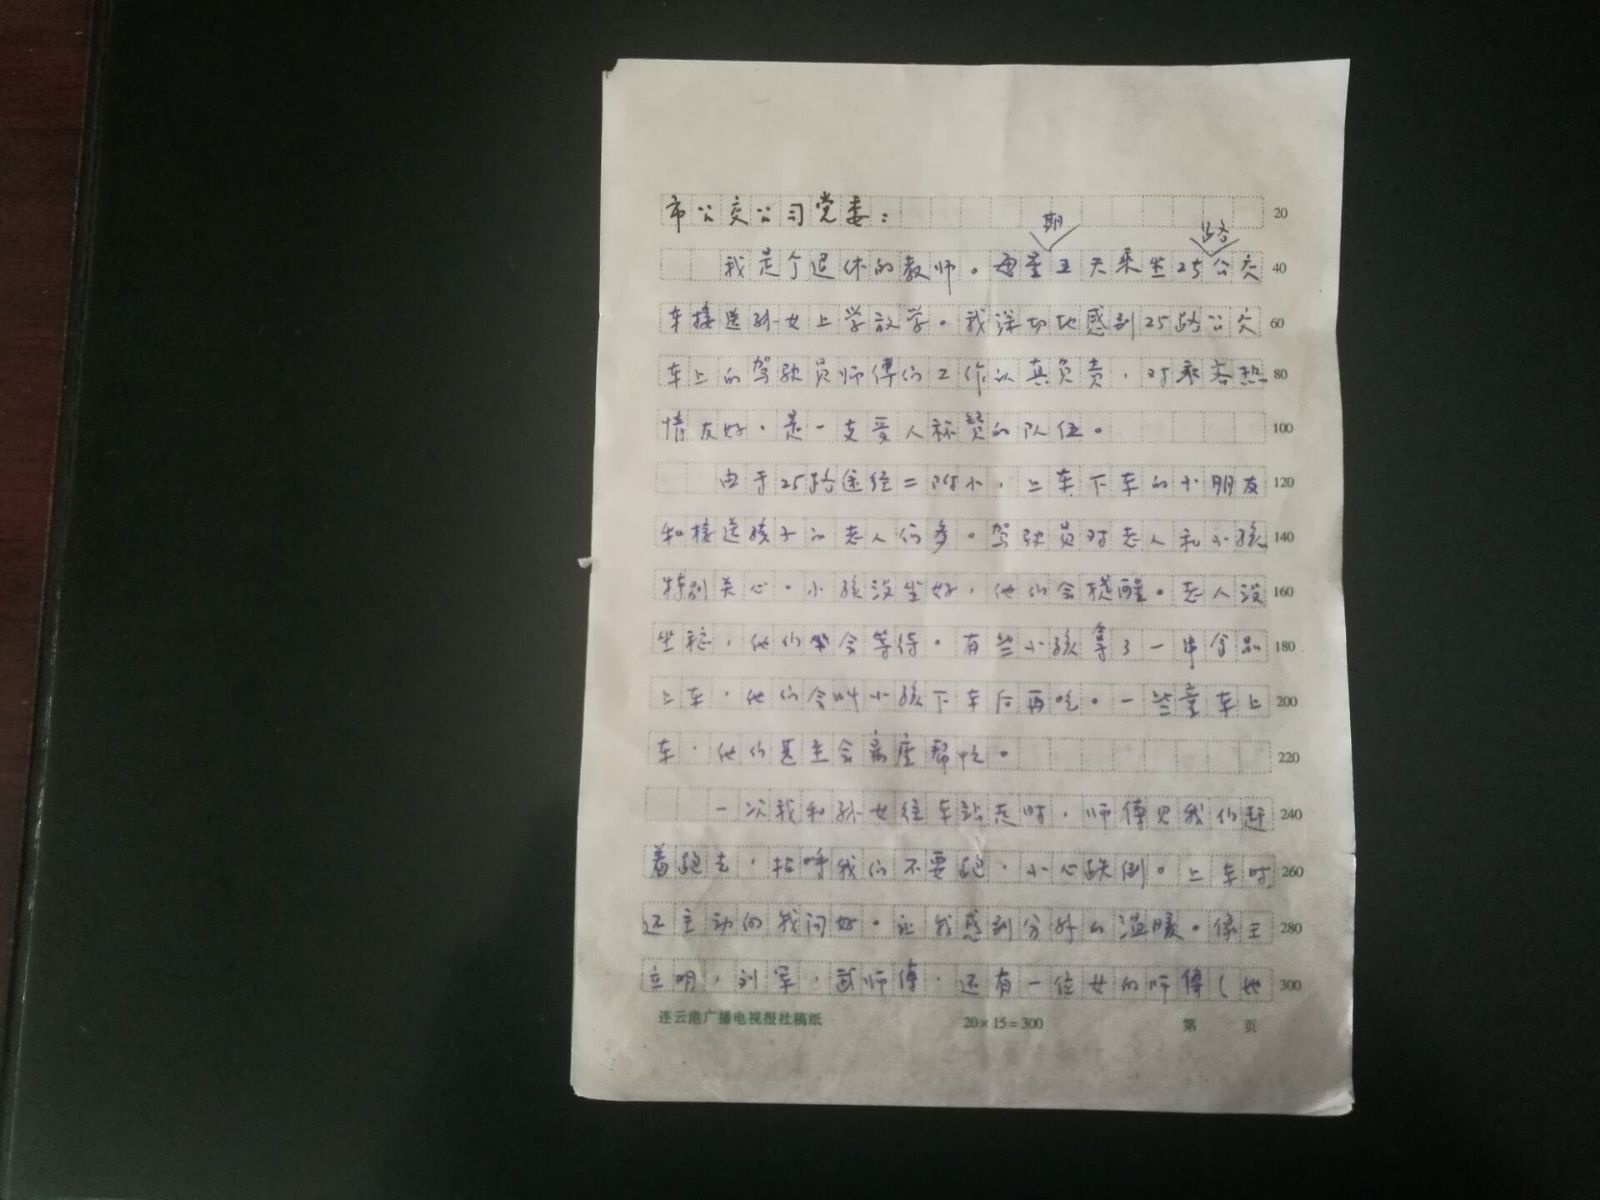 市公交公司党委： 20
期 路
我是个退休的教师。每星五天乘坐25公交 40
车接送孙女上学放学。我深切地感到25路公交 60
车上的驾驶员师傅们工作认真负责，对乘客热 80
情友好，是一支受人称赞的队伍。 100
由于25路途经二附小，上车下车的小朋友 120
和接送孩子的老人们多。驾驶员对老人和小孩 140
特别关心。小孩没坐好，他们会提醒。老人没 160
坐稳，他们会等待。有些小孩拿了一串食品 180
上车，他们会叫小孩下车后再吃。一些童车上 200
车，他们甚至会离座帮忙。 220
一次我和孙女往车站走时，师傅见我们赶 240
着跑去，招呼我们不要跑，小心跌倒。上车时 260
还主动向我问好。让我感到分外的温暖。像王 280
立明，刘军，武师傅，还有一位女的师傅（她 300
连云港广播电视报社稿纸 20×15=300 第 页